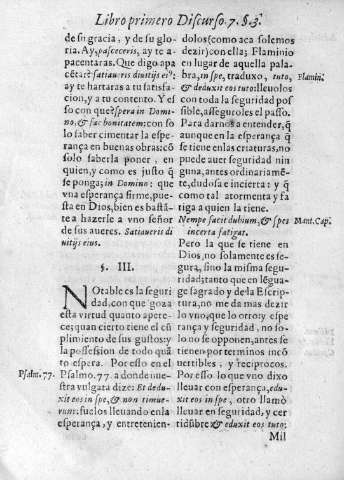 Libro primero Discurso. 7. §. 3.
de su gracia, y de su glo-
ria. Ay, pasceceris, ay te a-
pacentaras. Que digo apa
cẽtar? satiaueris diuitijs eiᵒ:
ay te hartaras a tu satisfa-
cion, y a tu contento. Y es
so con que? spera in Domi-
no, & fac bonitatem: con so
lo saber cimentar la espe-
rança en buenas obras: cõ
solo saberla poner, en
quien, y como es justo q̃
se ponga; in Domino: que
vna esperança firme, pues-
ta en Dios, bien es bastã-
te a hazerle a vno señor
de sus aueres. Satiaueris di
uitijs eius.
§. III.
NOtable es la seguri
dad, con que goza
esta virtud quanto apere-
ce; quan cierto tiene el cũ
plimiento de sus gustos: y
la possession de todo quã
to espera. Por esso en el
Psalmo. 77. a donde nues
tra vulgata dize: Et dedu-
xit eos in spe, & non timue-
runt: fuelos lleuando en la
esperança, y entretenien-
Psalm. 77.
dolos (como aca solemos
dezir) con ella; Flaminio
en lugar de aquella pala-
bra, in spe, traduxo, tuto,
& deduxit eos tuto: lleuolos
con toda la seguridad pos
sible, asseguroles el passo.
Para darnos a entender, q̃
aunque en la esperança q̃
se tiene en las criaturas, no
puede auer seguridad nin
guna, antes ordinariamẽ-
te, dudosa e incierta: y q̃
como tal atormenta y fa
tiga a quien la tiene.
Nempe facit dubium, & spes
incerta fatigat.
Pero la que se tiene en
Dios, no solamente es se-
gura, sino la misma segu-
ridad; tanto que en lẽgua-
ge sagrado y de la Escrip-
tura, no me da mas dezir
lo vno, que lo otro: y espe
rança y seguridad, no so-
lo no se oponen, antes se
tienen por terminos incõ
uertibles, y reciprocos.
Por esso lo que vno dixo
lleuar con esperança, edu-
xit eos in spe, otro llamò
lleuar en seguridad, y cer
tidũbre & eduxit eos tuto:
Flamin.
Mant. Cap.
Mil